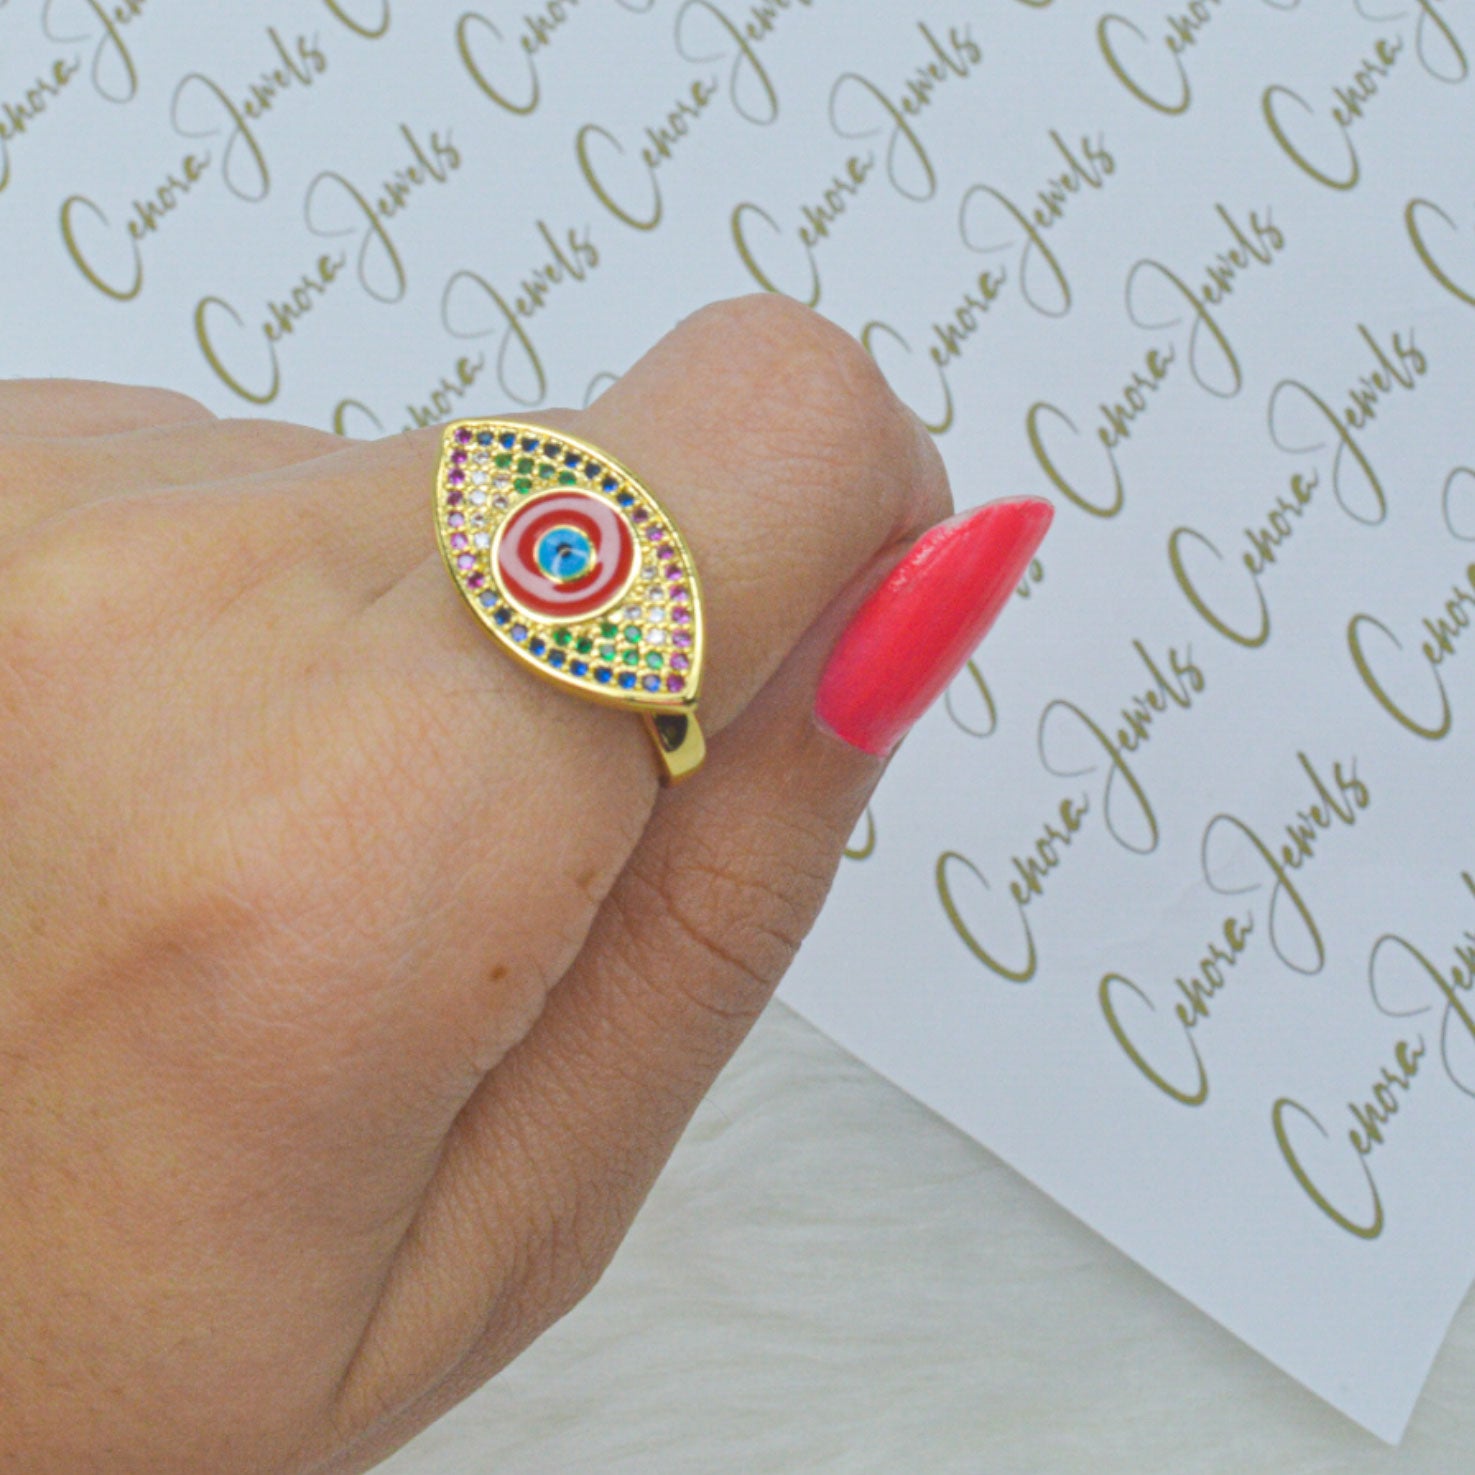 Cehora Jewels
Cehora Jewels
Cehora Jewels
Cehora Jewels
Cehora Jewels
Cehora Jewels
Cehora Jewels
Cehora Jewels
Cehora Jewels
Cehora Jewels
Cehora Jewels
Cehora Jewels
Cehora Jewels